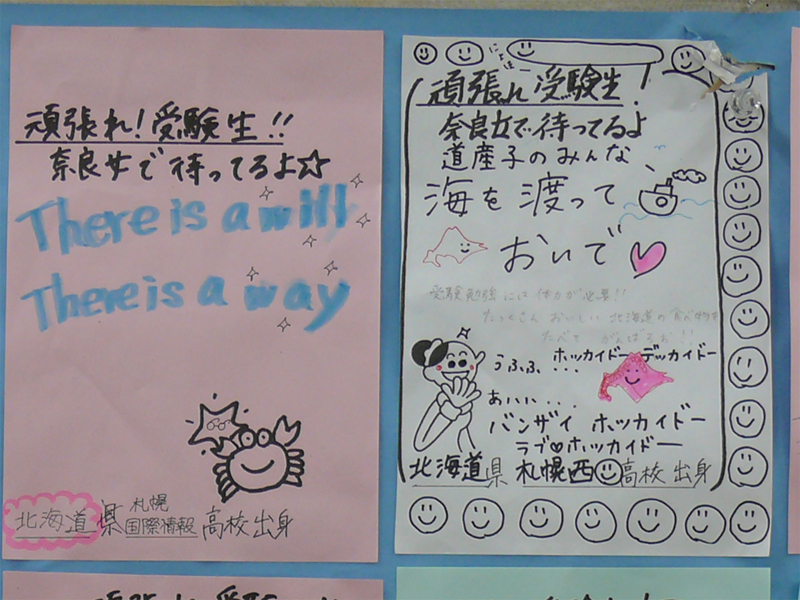 頑張れ！受験生！！
奈良女で待ってるよ☆
There is a will
There is a way
北海道県 札幌国際情報 高校出身
頑張れ受験生！
奈良女で待ってるよ
道産子のみんな
海を渡って
おいで♡
受験勉強には体力が必要！！
たくさんおいしい北海道の食べ物を
たべてがんばろぉ！！
うふふ...
ホッカイドーデッカイドー
あはは...
バンザイ ホッカイドー
ラブ♡ホッカイドー
北海道県 札幌西 高校出身